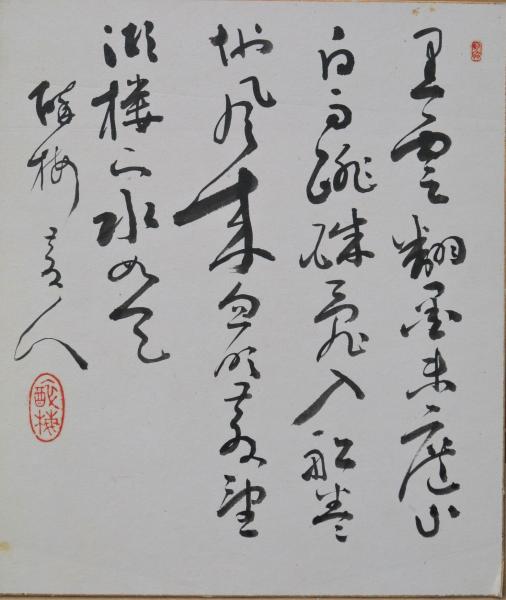 黒雲翻墨未遮山
白雨跳珠乱入船巻
地風来忽吹散望
湖楼下水如天
酔梅散人
酔梅